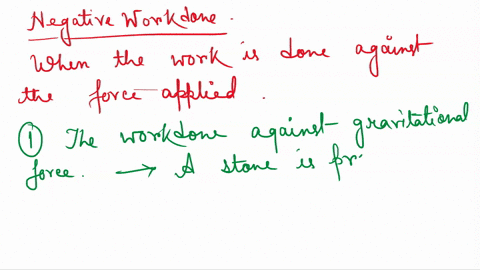 Negative Workdone.
When the work is done against
the force applied.
① The workdone against gravitational
force. → A stone is pr